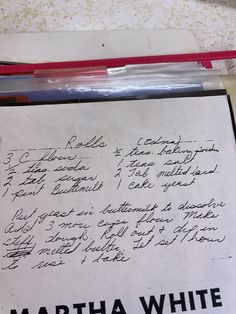 Rolls (Edna)
3 C flour ½ teas. baking powder
½ teas soda 1 teas salt
2 tab sugar 2 Tab melted lard
1 pint Buttermilk 1 cake yeast
Put yeast in buttermilk to dissolve
Add 3 more cups flour Make
stiff dough. Roll out & dip in
melted butter. Let set 1 hour
to rise & bake
MARTHA WHITE